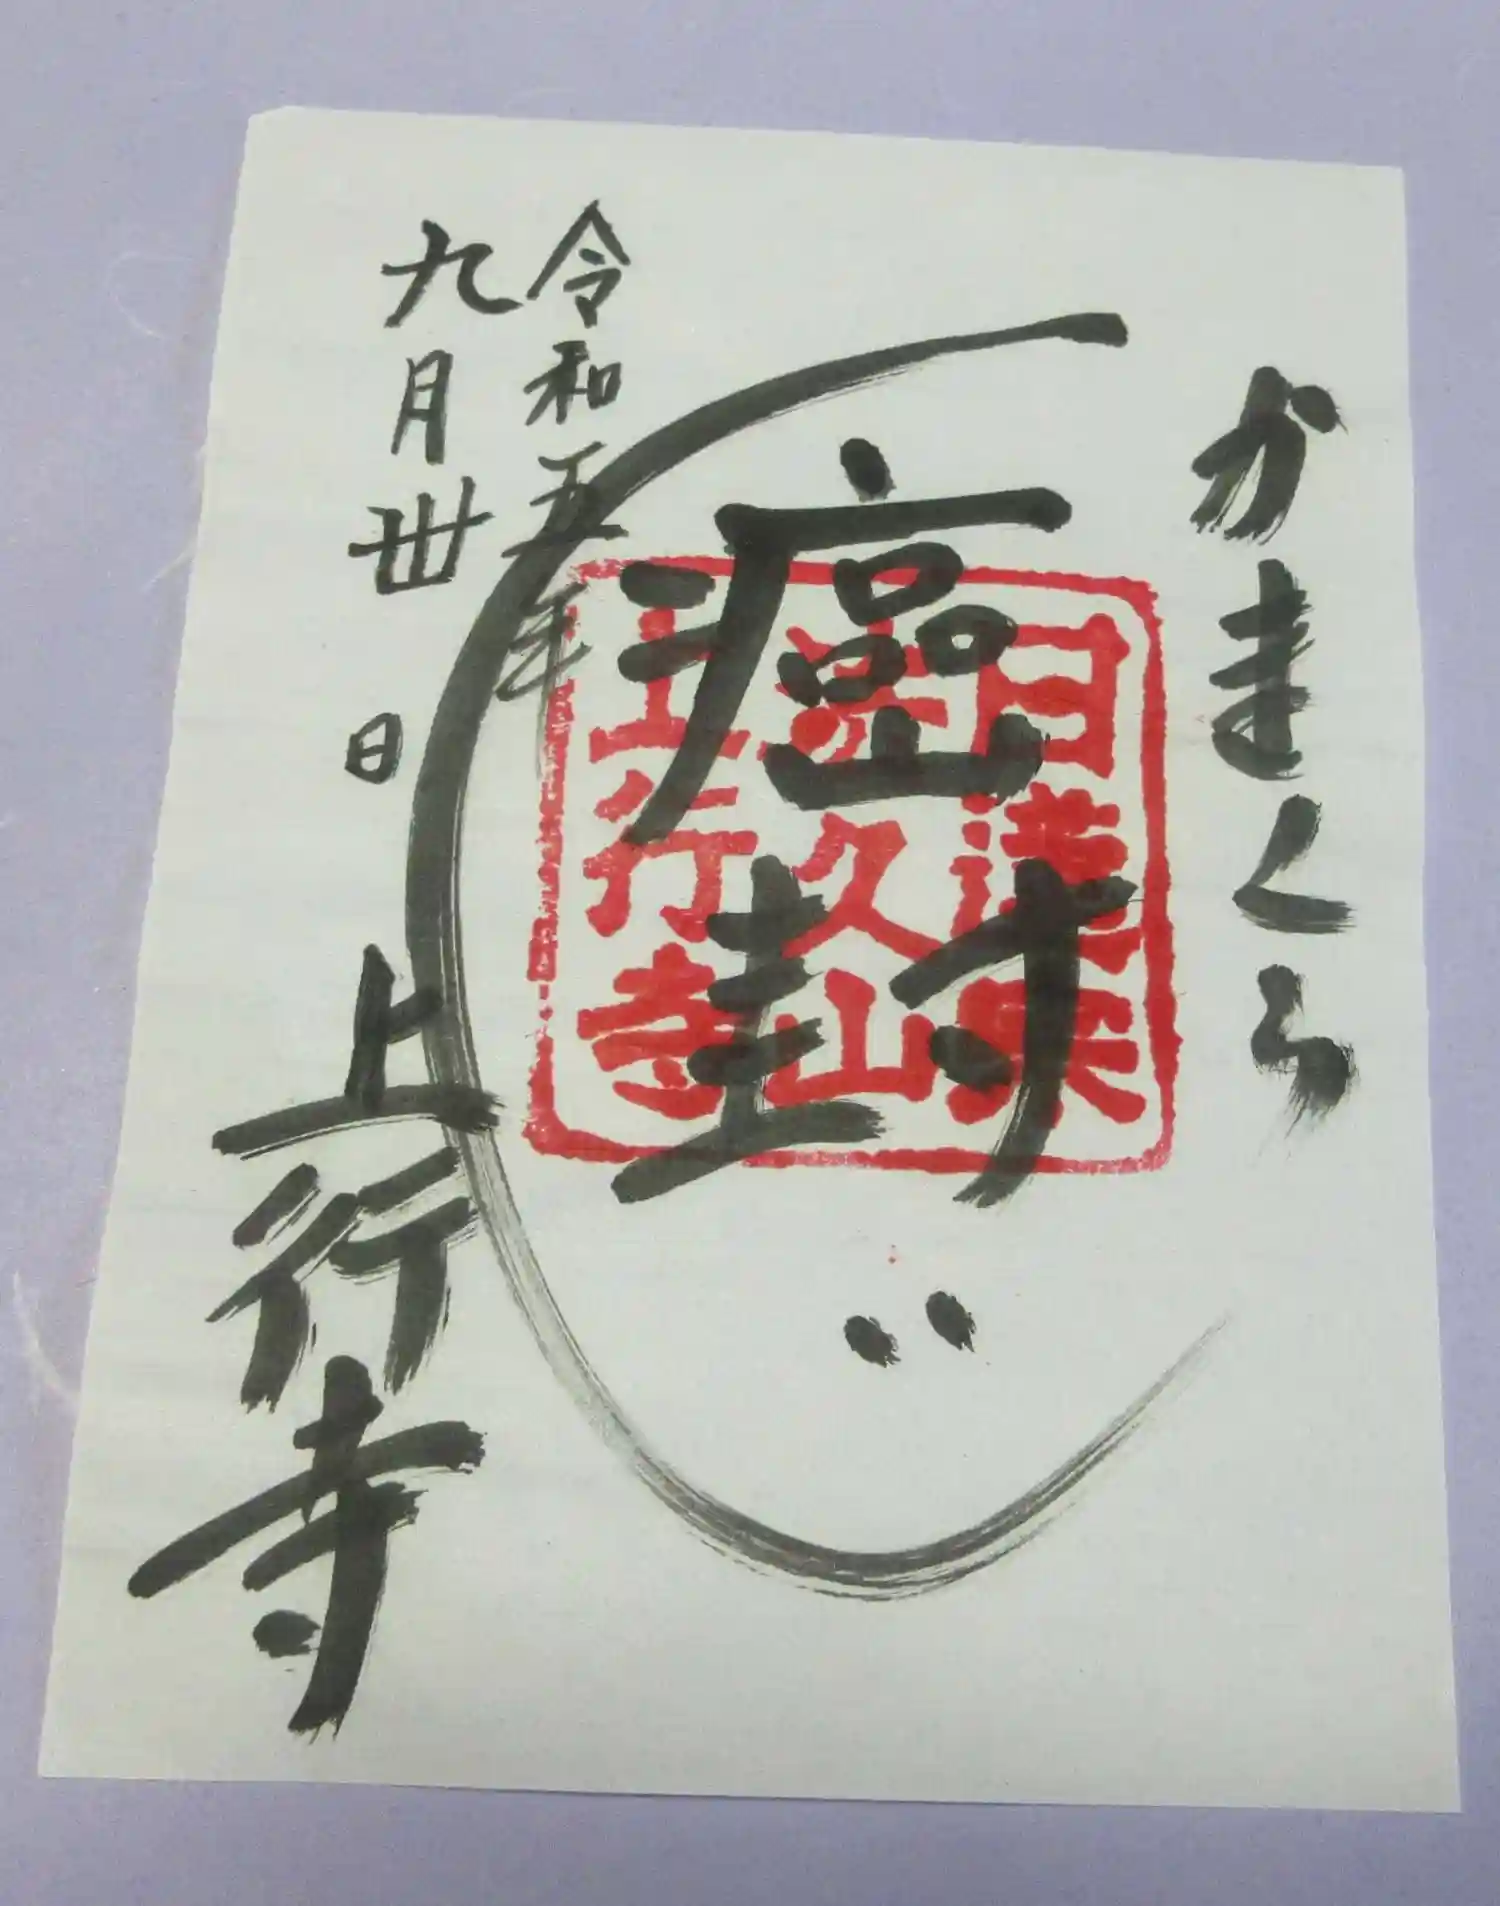 かまくら
癌封じ
令和五年
九月卅日
上行寺
日蓮宗
法久山
上行寺